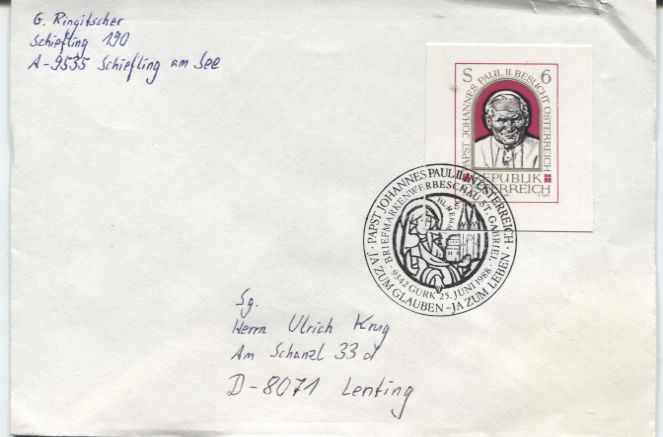 G. Ringitscher
Schiefling 190
A-9535 Schiefling am See
S 6
PAPST JOHANNES PAUL II. BESUCHT ÖSTERREICH
REPUBLIK
ÖSTERREICH
PAPST JOHANNES PAUL II. IN ÖSTERREICH
BRIEFMARKENWERBESCHAU ST. GABRIEL
HL. HEMMA
9342 GURK 25. JUNI 1988
JA ZUM GLAUBEN - JA ZUM LEBEN
Sg.
Herrn Ulrich Krug
Am Schanzl 33 d
D-8071 Lenting